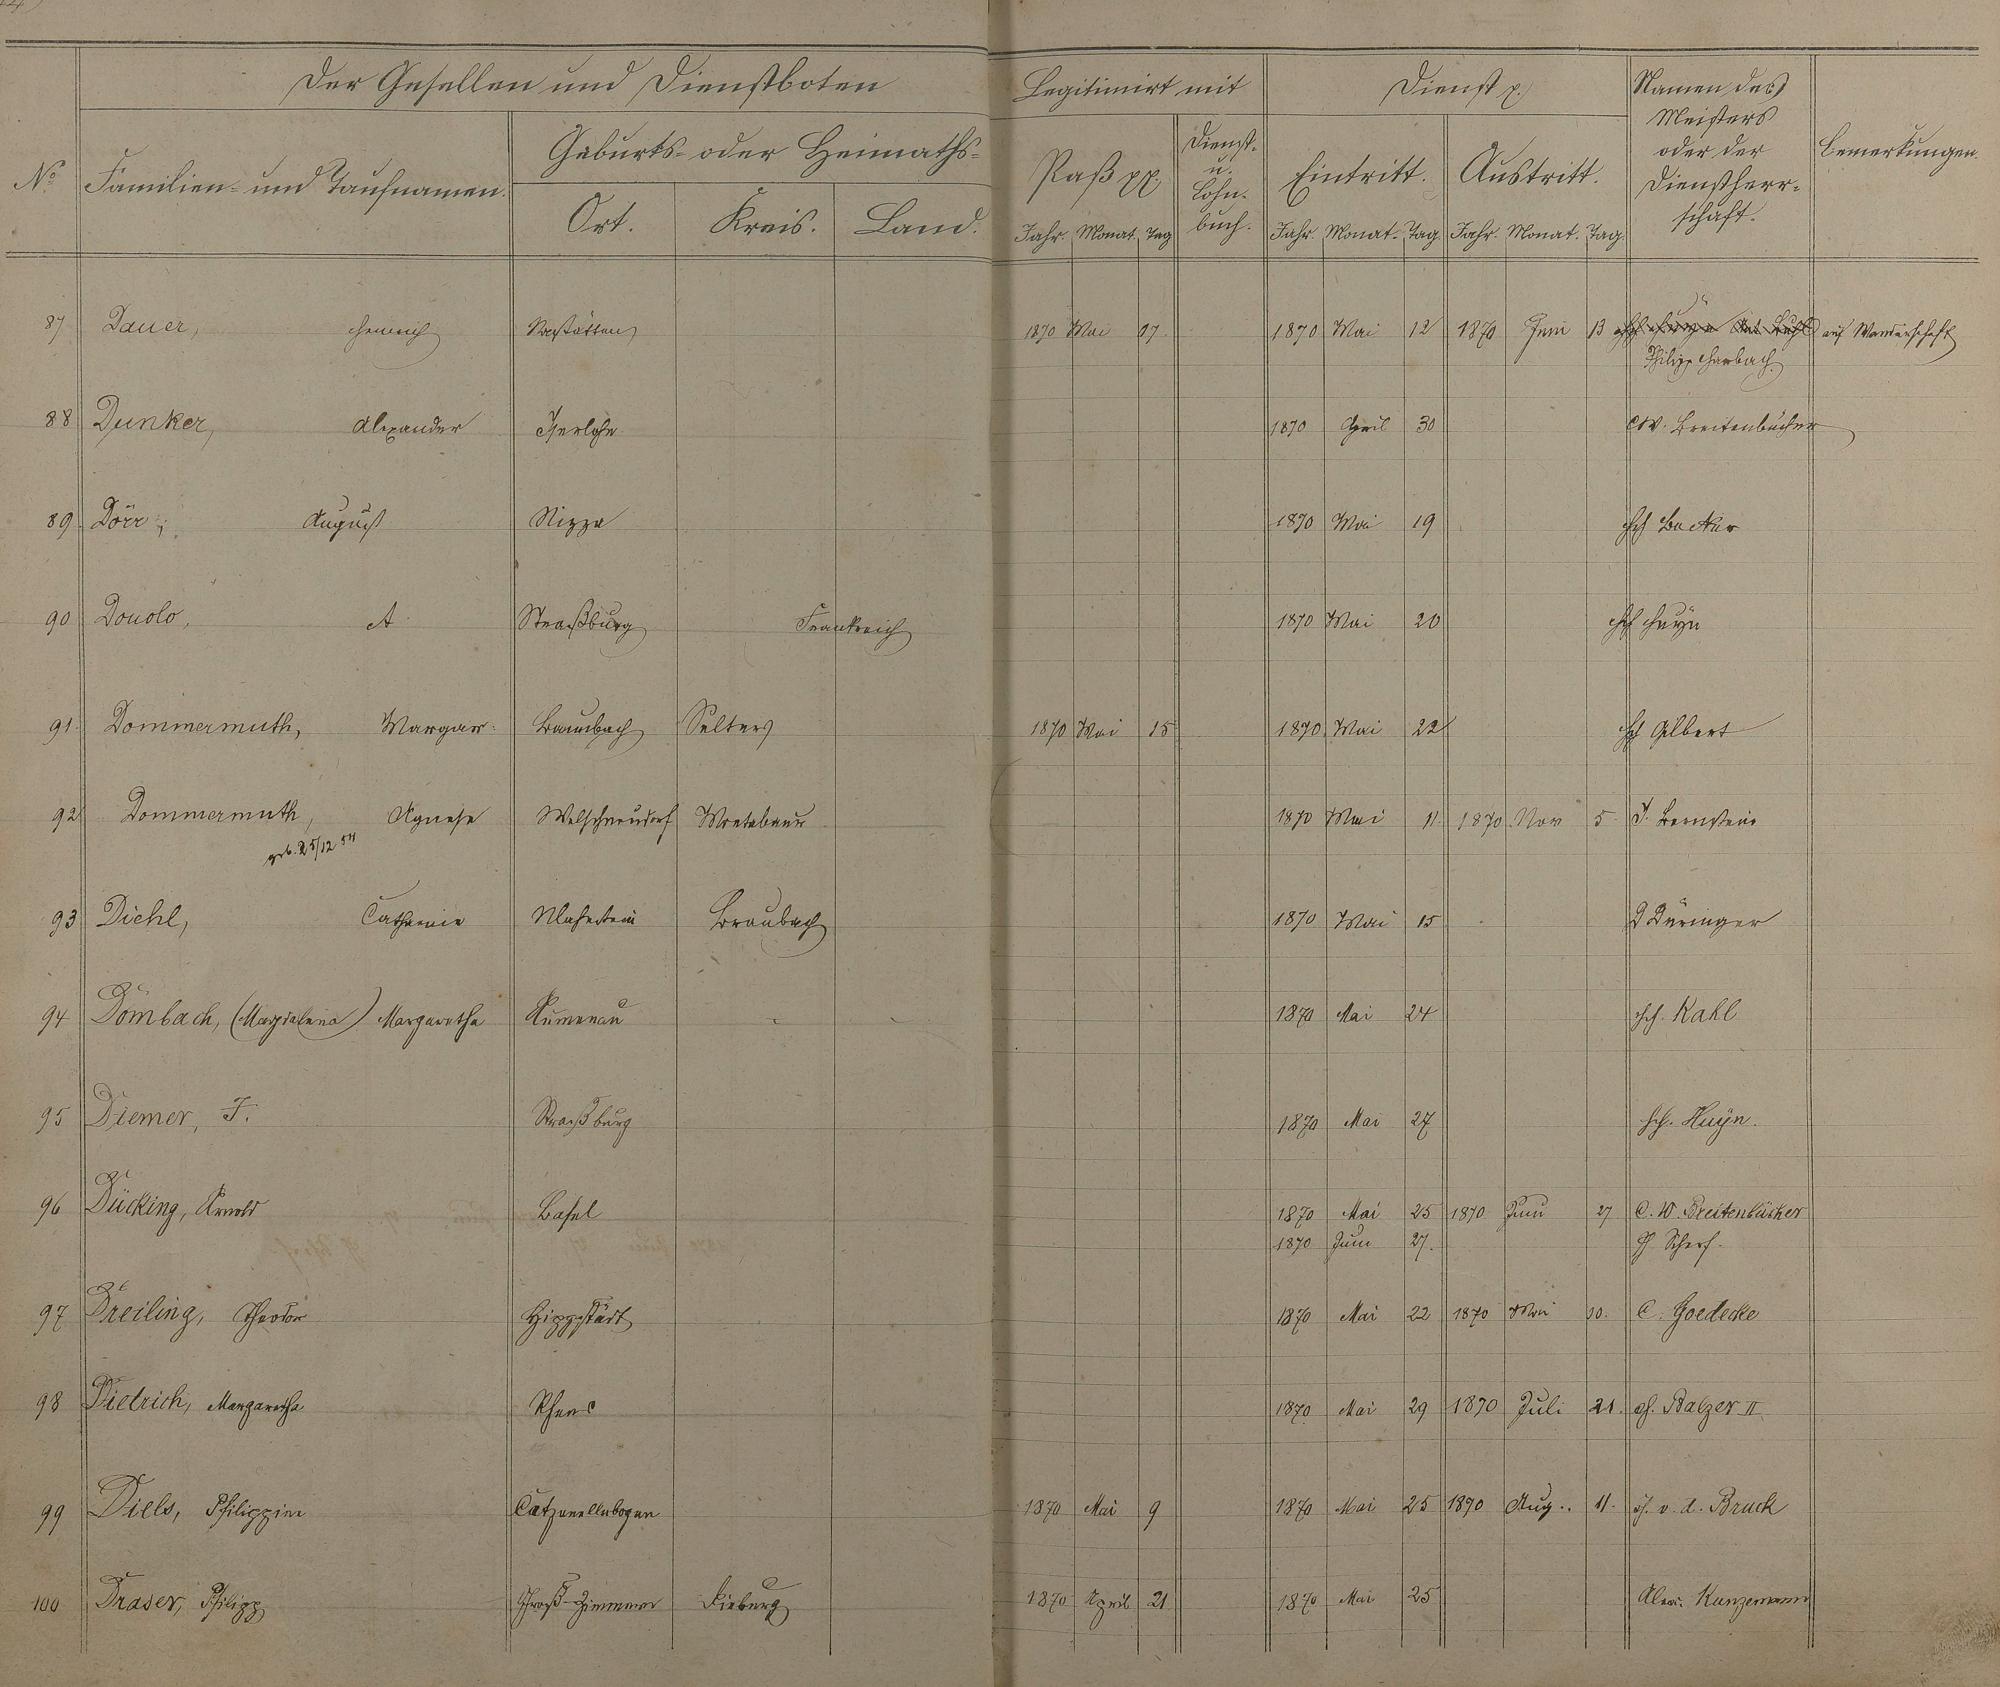 Der Gesellen und Dienstboten
Legitimirt mit
Dienst p.
Namen des
Meisters
oder der
Dienstherr-
schaft.
Bemerkungen.
No Familien- und Taufnamen.
Geburts- oder Heimaths-
Ort. Kreis. Land.
Paß pp.
Dienst-
u.
Lohn-
buch.
Eintritt. Austritt.
Jahr. Monat. Tag Jahr. Monat. Tag. Jahr. Monat. Tag.
87 Dauer, Heinrich Nastätten 1870 Mai 17 1870 Mai 12 1870 Juni 13 auf Wanderschaft
Philipp Harbach
88 Dunker, Alexander Iserlohn 1870 April 30 C.W. Breitenbücher
89 Dörr, August Nizza 1870 Mai 19 Hch Becker
90 Donolo, A Straßburg Frankreich 1870 Mai 20 Hch Huyn
91. Dommermuth, Margar: Baumbach Selters 1870 Mai 15 1870 Mai 22 Gilbert
92 Dommermuth, Agnese Welschneudorf Montabaur 1870 Mai 11 1870 Nov 5 J. Bernstein
geb. 25/12 54
93 Diehl, Catharine Braubach 1870 Mai 15 D Düringer
94 Dömbach, (Magdalena) Margaretha Aumenau 1870 Mai 24 Hch. Kahl
95 Diemer, J. Straßburg 1870 Mai 27 Hch. Huyn.
96 Dücking, Arnold Basel 1870 Mai 25 1870 Juni 27 C. W. Breitenbücher
1870 Juni 27. Scherf.
97 Dreiling, Theodor Hippstädt 1870 Mai 22 1870 Mai 30. C. Goedecke
98 Dietrich, Margaretha Rhens 1870 Mai 29 1870 Juli 21. Balzer II
99 Diels, Philippine Catzenellnbogen 1870 Mai 9 1870 Mai 25 1870 Aug.. 11. v. d. Bruck
100 Draser, Philipp Groß-Zimmern Dieburg 1870 April 21 1870 Mai 25 Alex. Kunzemann